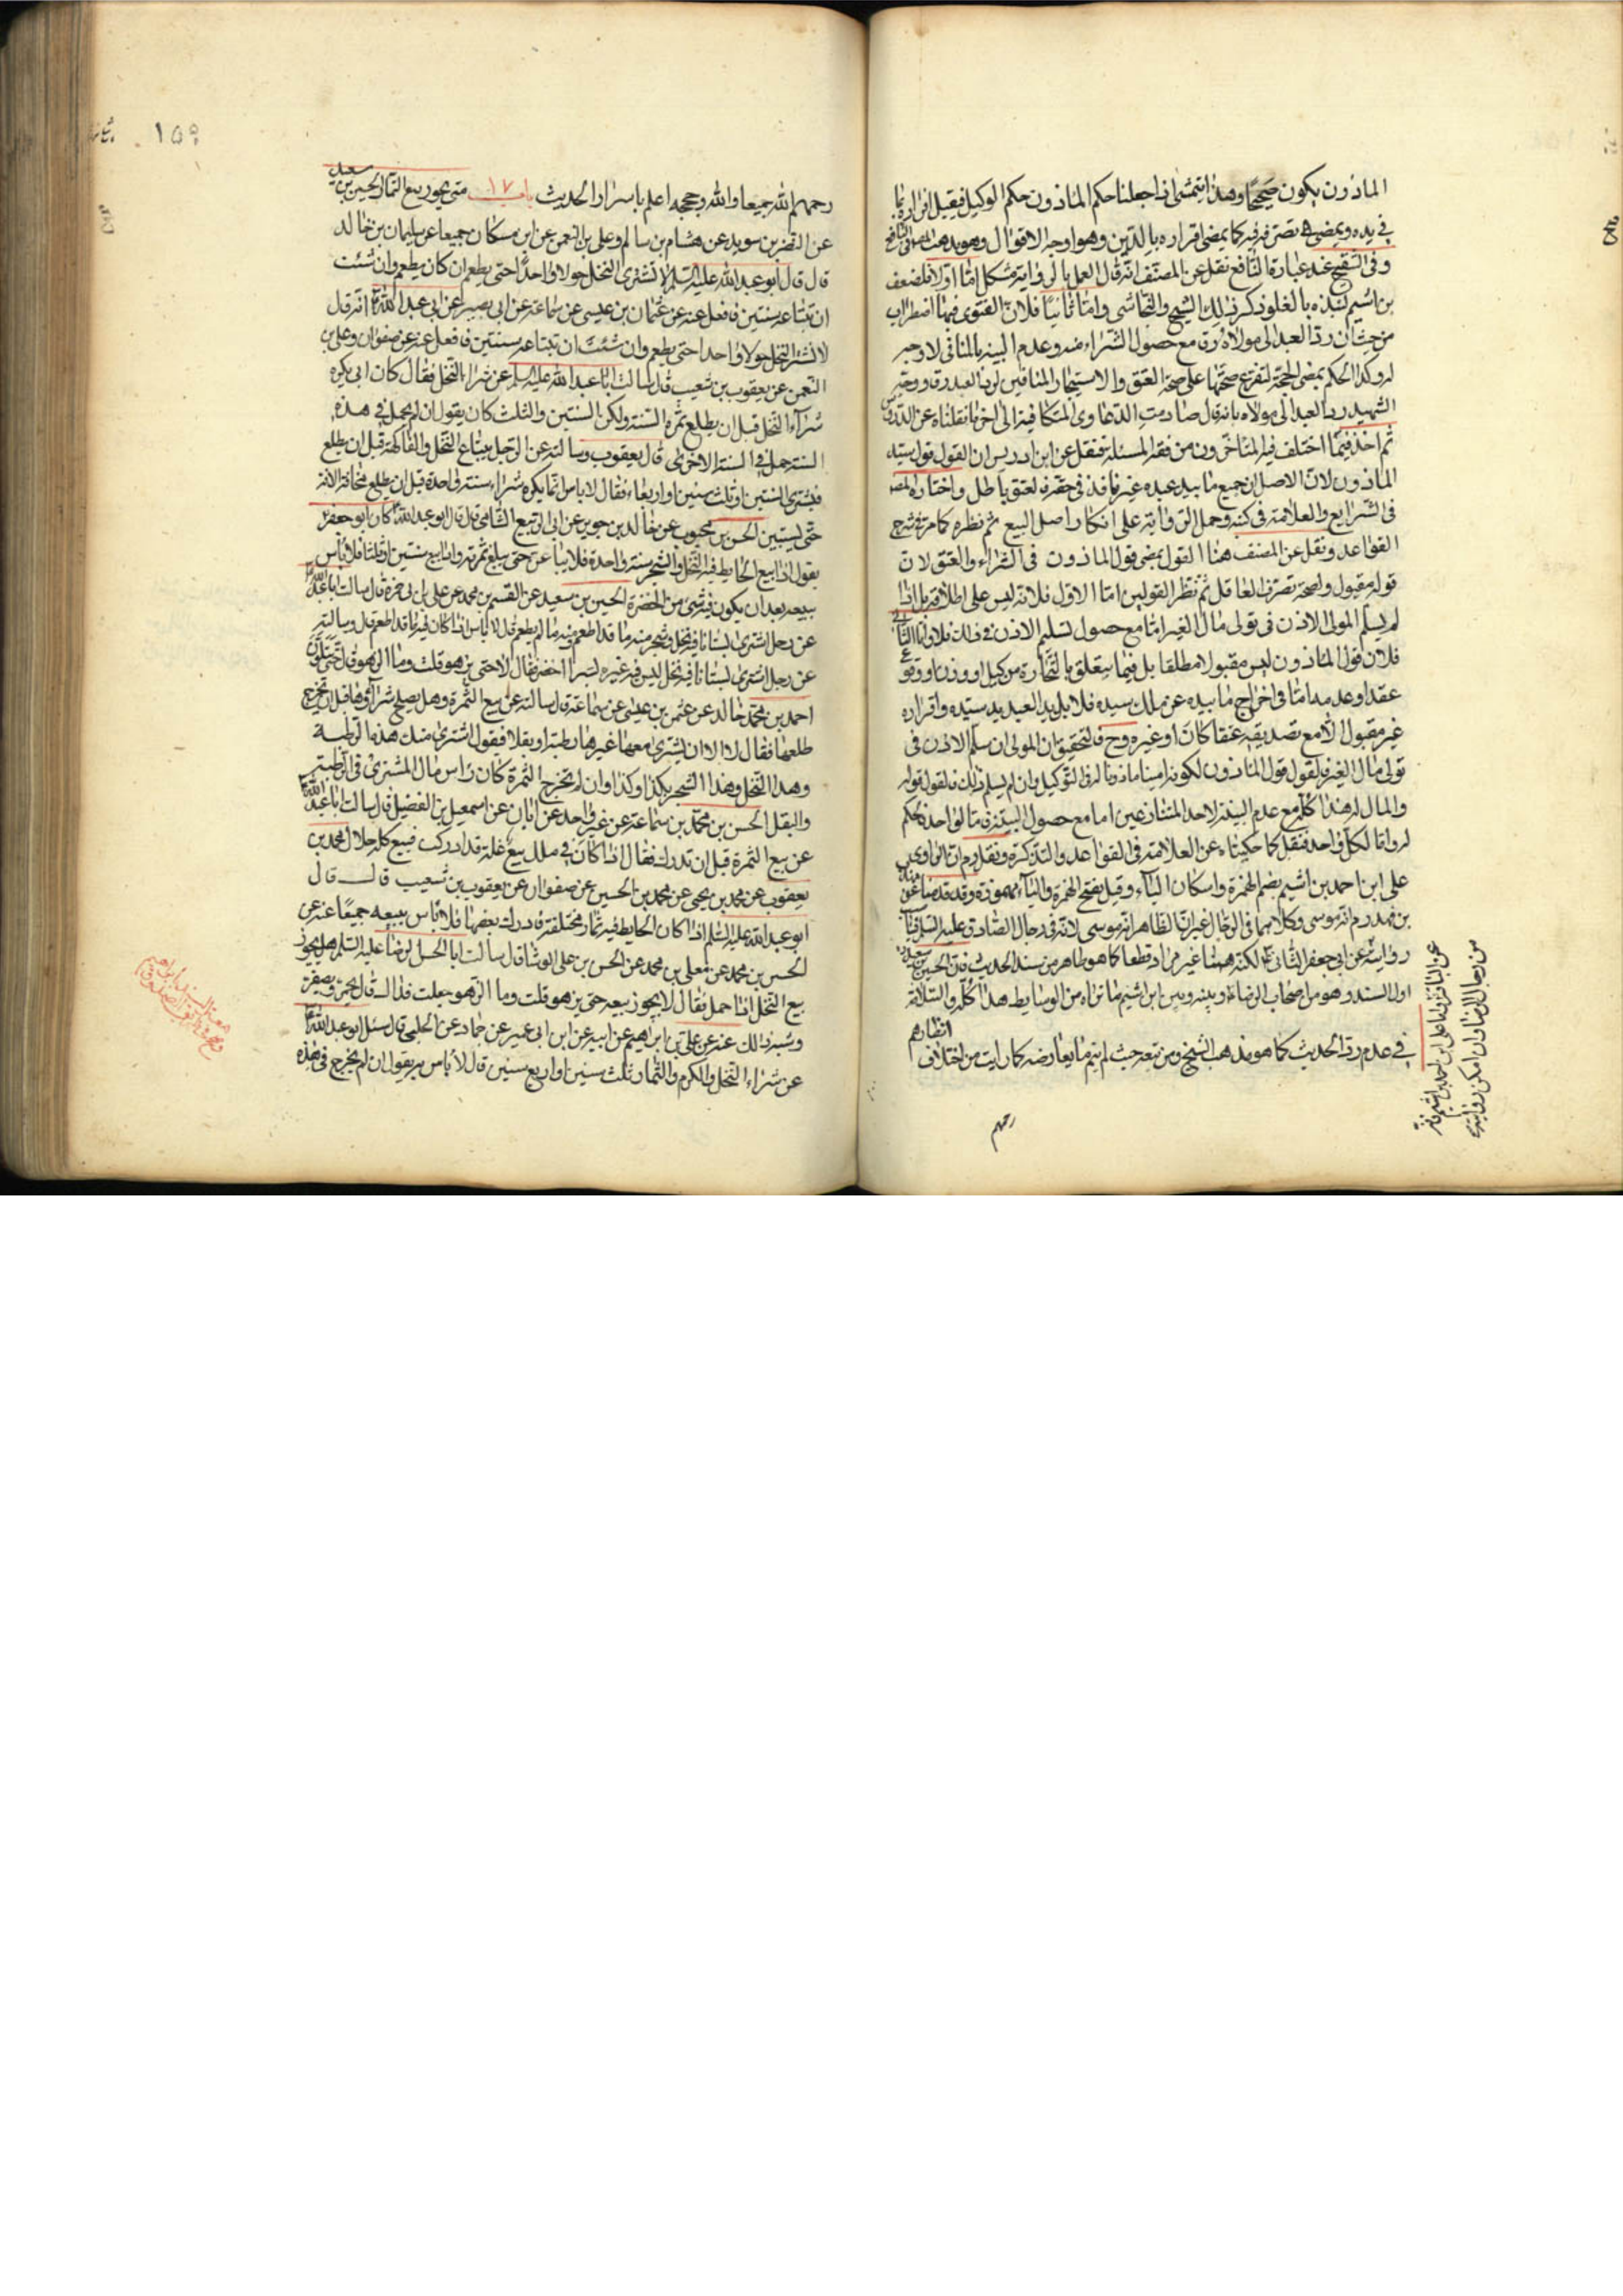 الماذون يكون صحيحا وهذا يتمشى اذا جعلنا حكم الماذون حكم الوكيل فيقبل اقراره بما
في يده ويمضى تصرفه فيه كما يمضى اقراره بالدين وهو اوجه الاقوال وهو يدهب
وفي التنقيح عند عبارة النافع نقل عن المصنف انه قال العمل بالرواية مشكل اما اولا فلضعف
بن اشيم لنبذه بالغلو ذكر ذلك الشيخ والنجاشى واما ثانيا فلان الفتوى فيها اضطراب
من حيث ان رد العبد الى مولاه رق مع حصول الشراء منه وعدم البينة بالمنافى لا وجه
له وكذا الحكم بمضى الحجة لتفرع صحتها على صحة العتق والاستيجار المنافيين لرد العبد رقا ووجه
الشهيد رد العبد الى مولاه بانه قال صادمت الدعاوى المتكافية الى اخر ما نقلناه عن الدروس
ثم اخذ فيما اختلف فيه المتاخرون من فقه المسئلة فنقل عن ابن ادريس ان القول قول سيد
الماذون لان الاصل ان جميع ما بيد عبده غيره نافذ في حقه فالعتق باطل واختاره المصـ
في الشرايع والعلامة في كتبه وحمل الرواية على انكار اصل البيع ثم نظره كما مر في شرح
القواعد ونقل عن المصنف هنا القول بمضى قول الماذون في الشراء والعتق لان
قوله مقبول ولصحة تصرف العاقل ثم نظر القولين اما الاول فلانه ليس على اطلاقه بل اذا
لم يسلم المولى الاذن في تولى مال الغير اما مع حصول تسليم الاذن في ذلك فلا واما الثانى
فلان قول الماذون ليس مقبولا مطلقا بل فيما يتعلق بالتجارة من كيل او وزن او وقوع
عقد او عدمه اما في اخراج ما بيده عن ملك سيده فلا بل يد العبد يد سيده واقراره
غير مقبول الا مع تصديقه عتقا كان او غيره وح فالتحقيق ان المولى ان سلم الاذن في
تولى مال الغير فالقول قول الماذون لكونه امينا ماذونا له في التوكيل وان لم يسلم ذلك فالقول قوله
والمال له هذا كله مع عدم البينة لاحد المتنازعين اما مع حصول البينة فما لواحد فالحكم
له واما لكل واحد فنقل كما حكيناه عن العلامة في القواعد والتذكرة ونقل رم ان الراوى
على ابن احمد بن اشيم بضم الهمزة واسكان الياء وقيل بفتح الهمزة والياء مهموزة وقد قدمنا عن
بن فهد رم انه موسى وكلاهما في الرجال غير ان الظاهر انه موسى لانه في رجال الصادق عليه السلم
روايته عن ابى جعفر الثانى لكنه ههنا غير مراد قطعا كما هو ظاهر من سند الحديث فان الحسين بن سعيد
اول السند وهو من اصحاب الرضاء وبينه وبين ابن اشيم ما تراه من الوسايط هذا كله والسلامة
في عدم رد الحديث كما هو مذهب الشيخ ومن تبعه حيث لم يتم ما يعارضه كما رايت من اختلاف انظارهم
رحمهم
عن الباقر واما على ابن احمد بن اشيم فانه
من رجال الرضا وان امكن روايته
١٥٩
رحمهم الله جميعا والله وحججه اعلم باسرار الحديث باب ١٧ متى يجوز بيع الثمار الحسين بن سعيد
عن النضر بن سويد عن هشام بن سالم وعلى بن النعمن عن ابن مسكان جميعا عن سليمان بن خالد
قال قال ابو عبد الله عليه السلم لا تشترى النخل حولا واحدا حتى يطعم ان كان يطعم وان شئت
ان تبتاعه سنتين فافعل عنه عن عثمان بن عيسى عن سماعة عن ابى بصير عن ابى عبد الله ع انه قال
لا تشتر النخل حولا واحدا حتى يطعم وان شئت ان تبتاعه سنتين فافعل عنه عن صفوان وعلى بن
النعمن عن يعقوب بن شعيب قال سالت ابا عبد الله عليه السلم عن شراء النخل فقال كان ابى يكره
شراء النخل قبل ان يطلع ثمرة السنة ولكن السنتين والثلث كان يقول ان لم يحمل في هذه
السنة حمل في السنة الاخرى قال يعقوب وسالته عن الرجل يبتاع النخل والفاكهة قبل ان يطلع
فيشترى السنتين او ثلث سنين او اربعا فقال لا باس انما يكره شراء سنة واحدة قبل ان يطلع مخافة الافة
حتى يستبين الحسن بن محبوب عن خالد بن جرير عن ابى الربيع الشامى قال قال ابو عبد الله ع كان ابو جعفر ع
يقول اذا بيع الحايط فيه النخل والشجر سنة واحدة فلا يباعن حتى يبلغ ثمرته واذا بيع سنتين او ثلثا فلا باس
ببيعه بعد ان يكون فيه شئ من الخضرة الحسين بن سعيد عن القسم بن محمد عن على بن ابى حمزة قال سالت ابا عبد الله ع
عن رجل اشترى بستانا فيه نخل وشجر منه ما قد اطعم ومنه ما لم يطعم قال لا باس اذا كان فيه ما قد اطعم قال وسالته
عن رجل اشترى بستانا فيه نخل ليس فيه غيره بسرا اخضر فقال لا حتى يزهو قلت وما الزهو قال حتى يتلون
احمد بن محمد خالد عن عثمن بن عيسى عن سماعة قال سالته عن بيع الثمرة وهل يصلح شراؤها قبل ان يخرج
طلعها فقال لا الا ان يشترى معها غيرها رطبة او بقلا فيقول اشترى منك هذه الرطبة
وهذا النخل وهذا الشجر بكذا وكذا وان لم تخرج الثمرة كان راس مال المشترى في الرطبة
والبقل الحسن بن محمد بن سماعة عن غير واحد عن ابان عن اسمعيل بن الفضيل قال سالت ابا عبد الله ع
عن بيع الثمرة قبل ان تدرك فقال اذا كان في تلك بيع غلة قد ادركت فبيع كله حلال محمد بن
يعقوب عن محمد بن يحيى عن محمد بن الحسين عن صفوان عن يعقوب بن شعيب قال قال
ابو عبد الله عليه السلم اذا كان الحايط فيه ثمار مختلفة فادرك بعضها فلا باس ببيعه جميعا عنه عن
الحسين بن محمد عن معلى بن محمد عن الحسن بن على الوشا قال سالت ابا الحسن الرضا عليه السلم هل يجوز
بيع النخل اذا حمل فقال لا يجوز بيعه حتى يزهو قلت وما الزهو جعلت فداك قال يحمر ويصفر
وشبه ذلك عنه عن على بن ابراهيم عن ابيه عن ابن ابى عمير عن حماد عن الحلبى قال سئل ابو عبد الله ع
عن شراء النخل والكرم والثمار ثلث سنين او اربع سنين قال لا باس به يقول ان لم يخرج في هذه